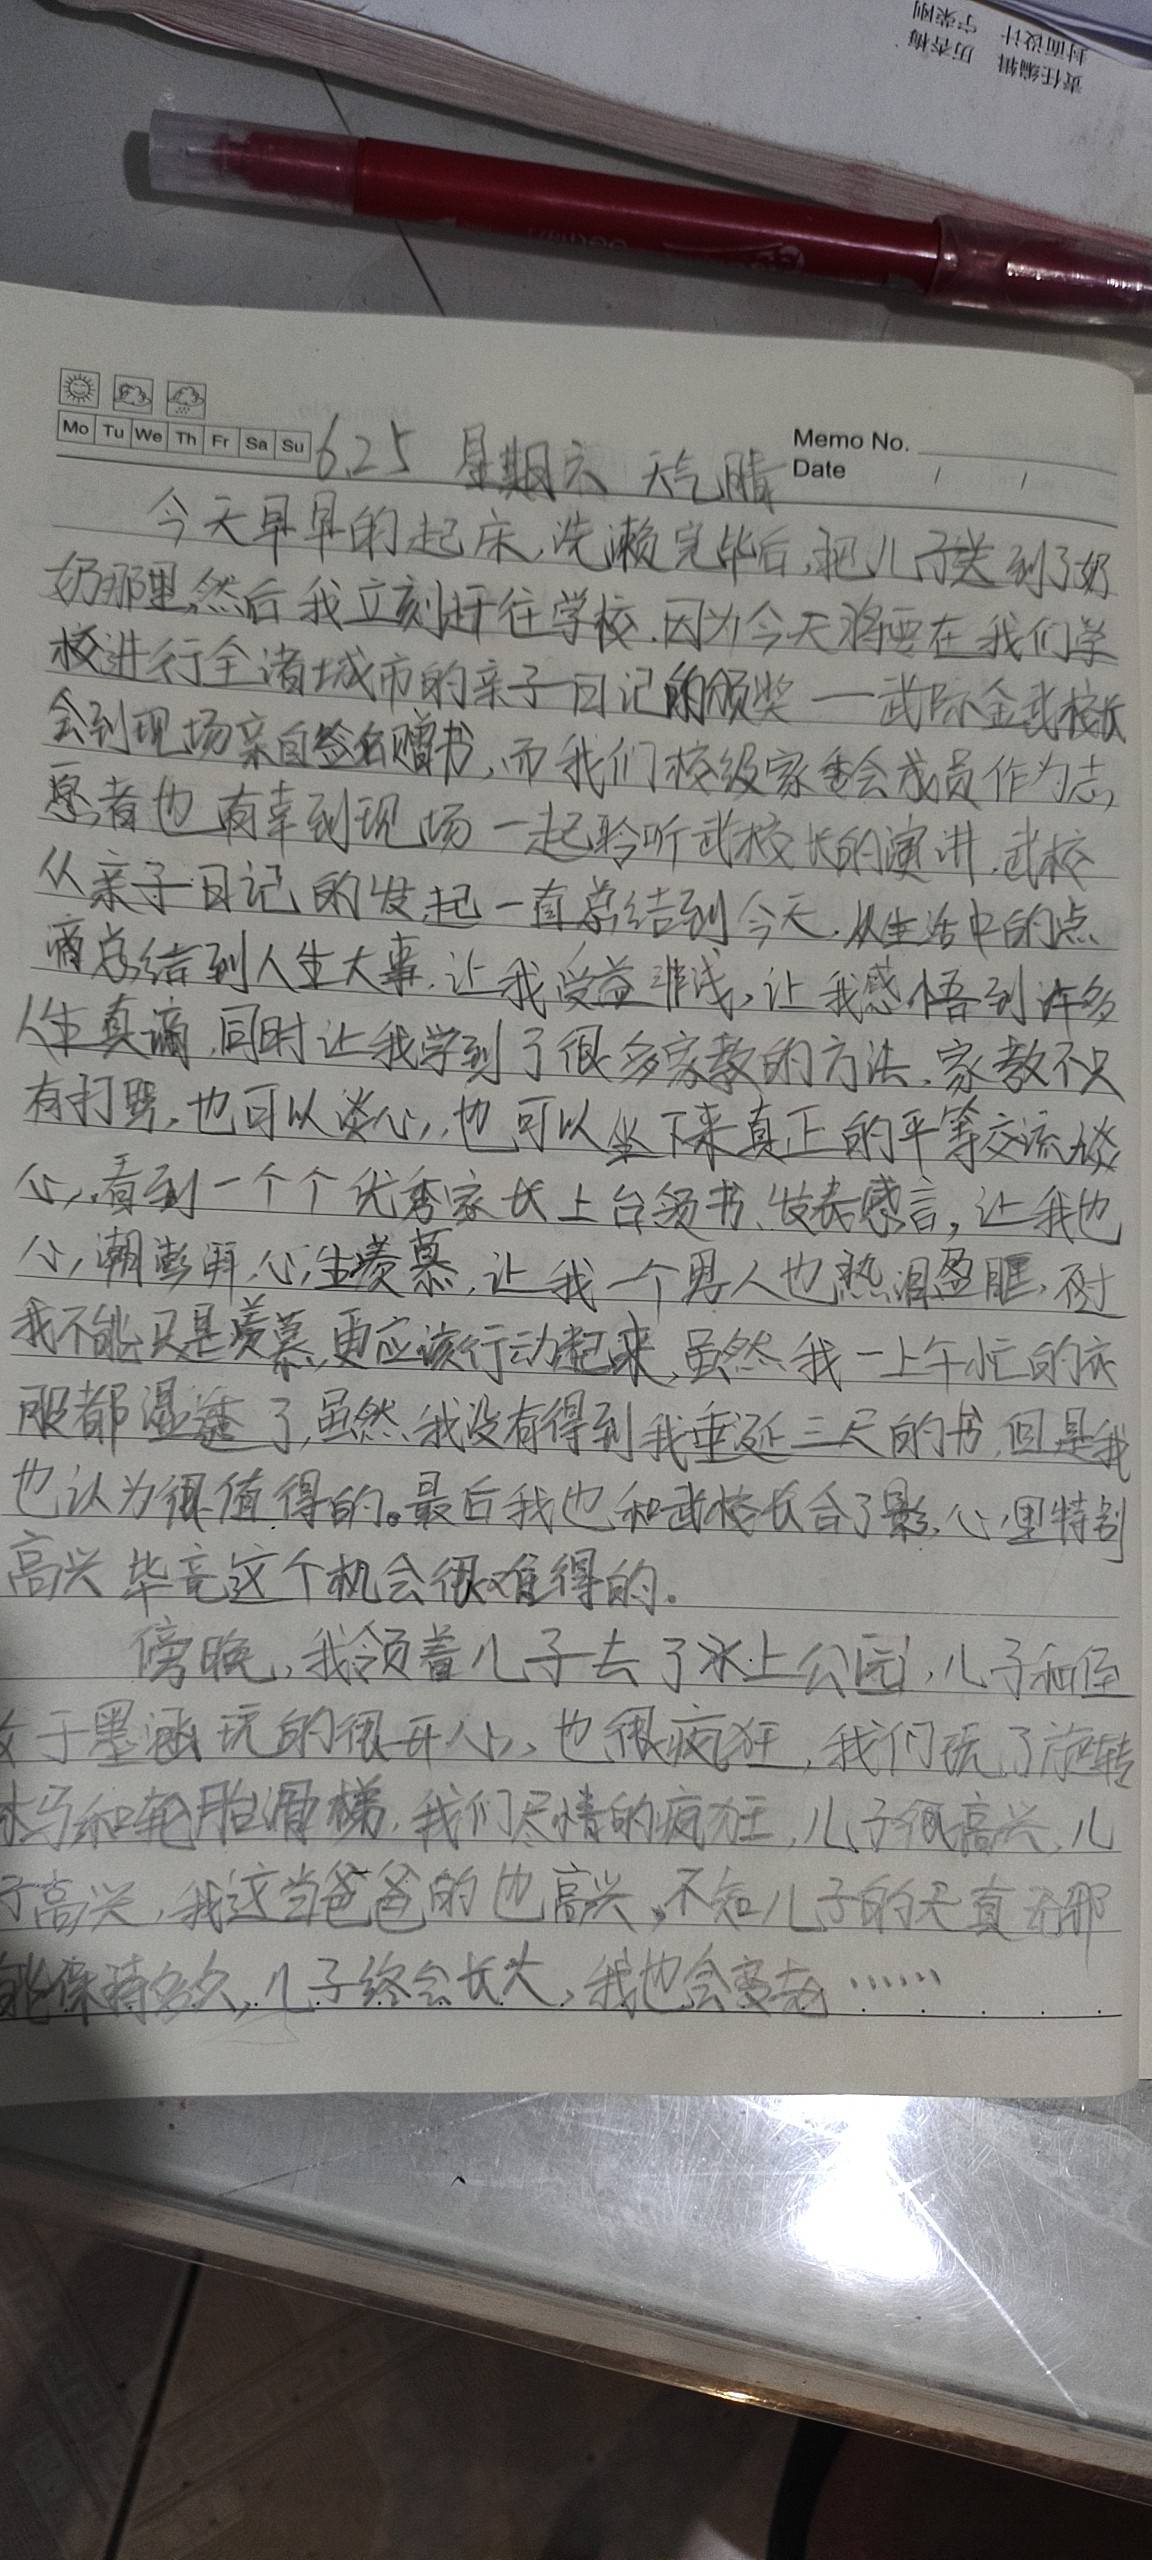 责任编辑 厉杏梅
封面设计 宁荣刚
Mo Tu We Th Fr Sa Su
Memo No.
Date / /
6.25 星期六 天气晴
今天早早的起床,洗濑完毕后,把儿子送到了奶
奶那里,然后我立刻赶往学校.因为今天将要在我们学
校进行全诸城市的亲子日记的颁奖一武际金武校长
会到现场亲自签名赠书,而我们校级家委会成员作为志
愿者也有幸到现场一起聆听武校长的演讲.武校
从亲子日记的发起一直总结到今天.从生活中的点
滴总结到人生大事.让我受益非浅,让我感悟到许多
人生真谛.同时让我学到了很多家教的方法.家教不只
有打骂,也可以谈心,也可以坐下来真正的平等交流谈
心,看到一个个优秀家长上台领书、发表感言,让我也
心潮澎湃.心生羡慕,让我一个男人也热泪盈眶.不过
我不能只是羡慕,更应该行动起来,虽然我一上午忙的衣
服都湿透了,虽然我没有得到我垂延三尺的书,但是我
也认为很值得的。最后我也和武校长合了影,心里特别
高兴毕竟这个机会很难得的.
傍晚,我领着儿子去了水上公园,儿子和侄
女于墨涵玩的很开心,也很疯狂,我们玩了旋转
木马和轮胎滑梯.我们尽情的疯狂,儿子很高兴,儿
子高兴,我这当爸爸的也高兴,不知儿子的天真无邪
能保持多久,儿子终会长大,我也会变老……